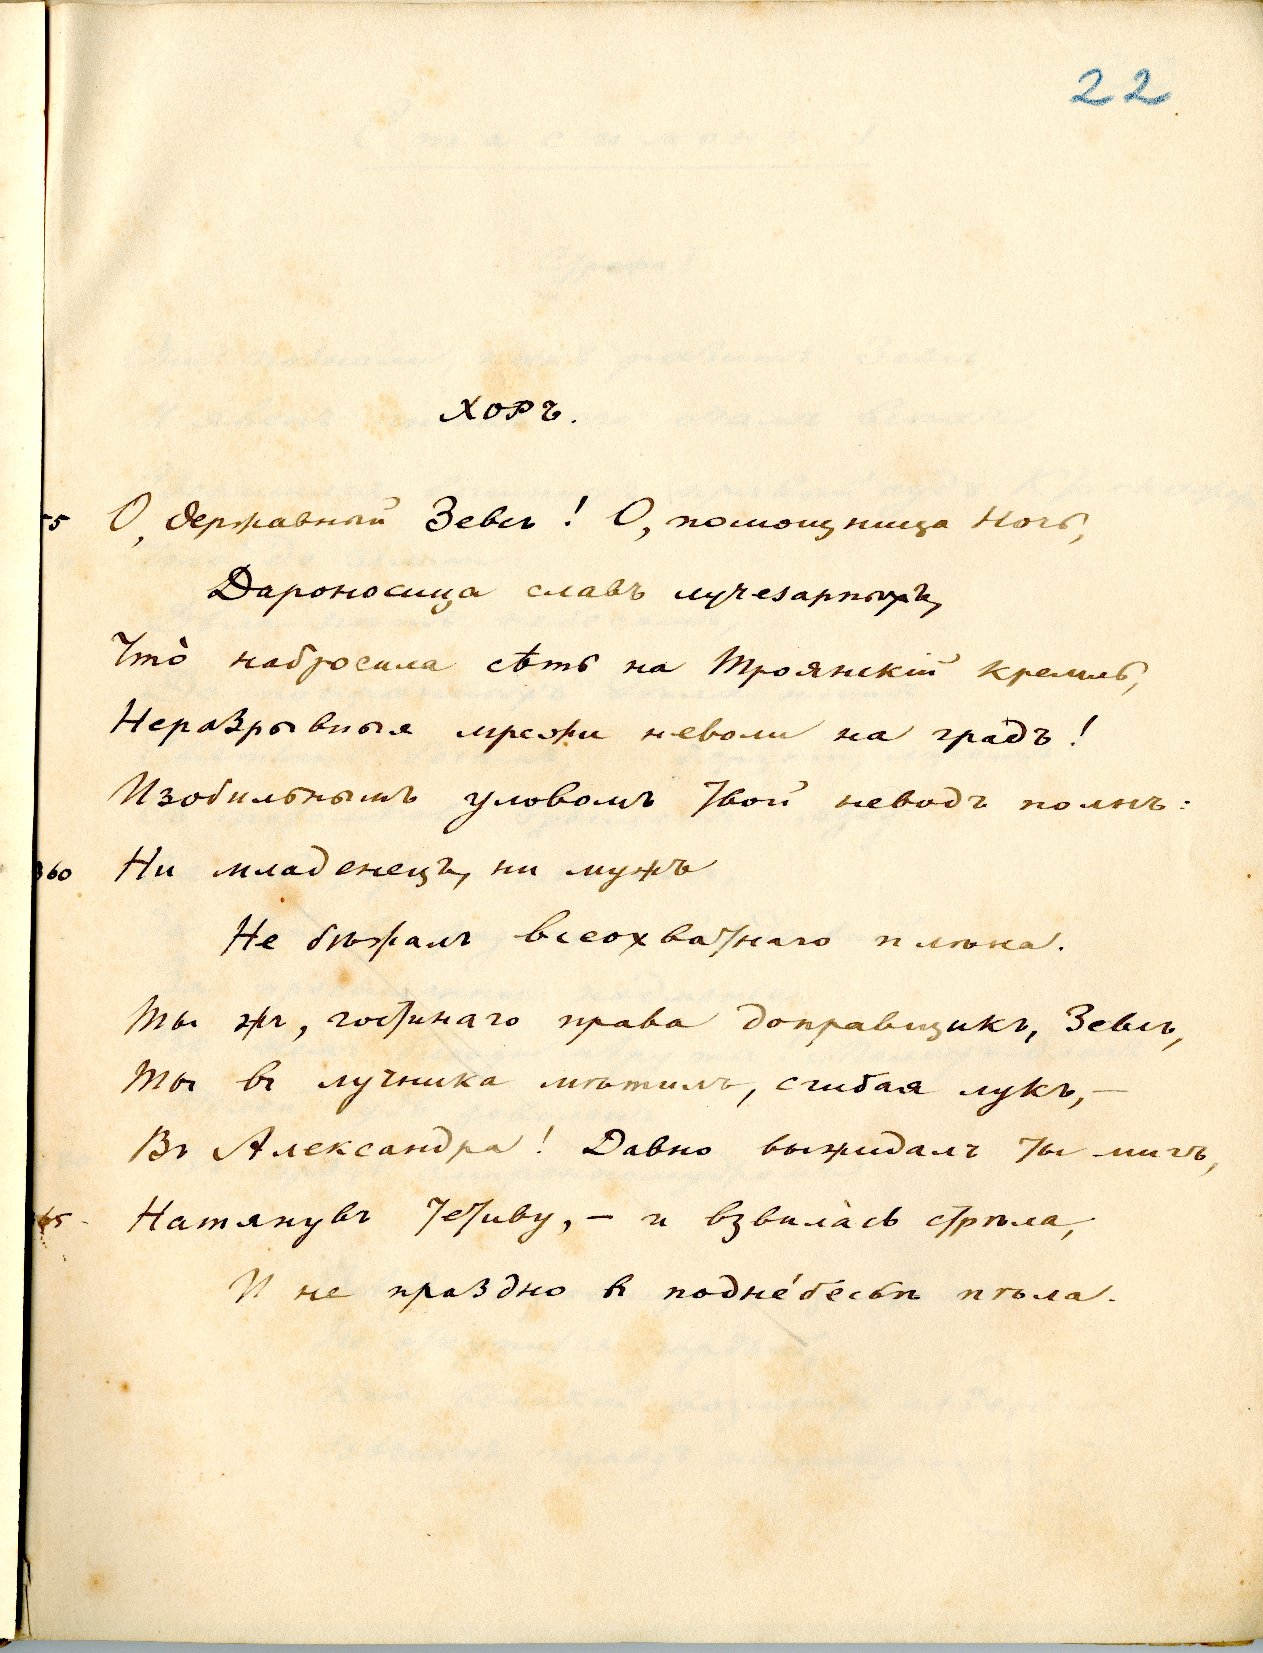 22
ХОРЪ.
55 О, державный Зевсъ! О, помощница Ночь,
Дароносица славъ лучезарныхъ,
Что̀ набросила сѣть на Троянскій кремль,
Неразрывныя мрежи неволи на градъ!
Изобильнымъ уловомъ твой неводъ полнъ:
360 Ни младенецъ, ни мужъ
Не бѣжалъ всеохватнаго плѣна.
Ты жъ, гостинаго права доправщикъ, Зевсъ,
Ты въ лучника мѣтилъ, сгибая лукъ, —
Въ Александра! Давно выжидалъ ты мигъ,
65 Натянувъ тетиву, — и взвила̀сь стрѣла,
И не праздно въ подне́бесьѣ пѣла.